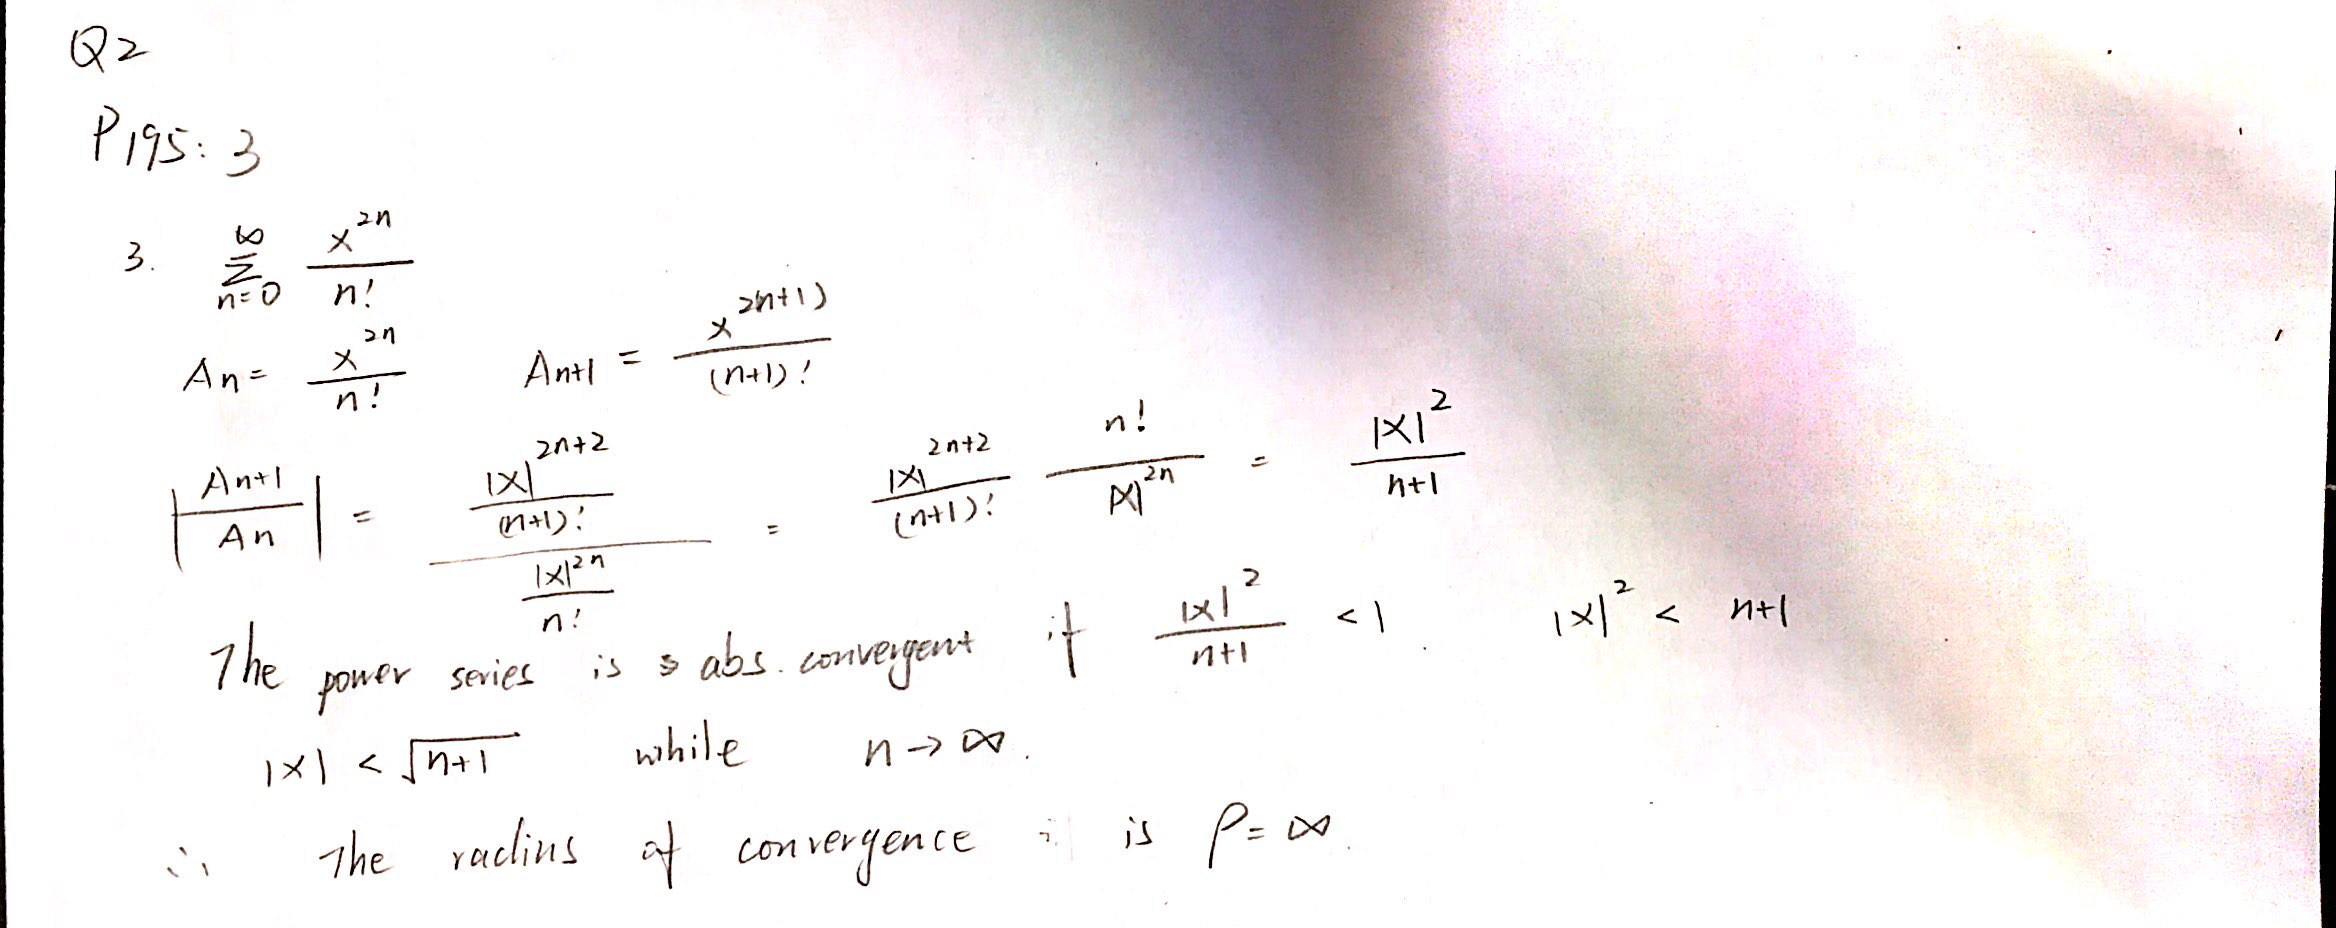 Q2
P195: 3
3. ∞ Σ n=0 x^2n / n!
An = x^2n / n!   An+1 = x^2(n+1) / (n+1)!
| An+1 / An | = (|x|^2n+2 / (n+1)!) / (|x|^2n / n!) = |x|^2n+2 / (n+1)! n! / |x|^2n = |x|^2 / n+1
The power series is abs. convergent if |x|^2 / n+1 < 1. |x|^2 < n+1
|x| < √n+1 while n → ∞.
∴ The radius of convergence is ρ = ∞.